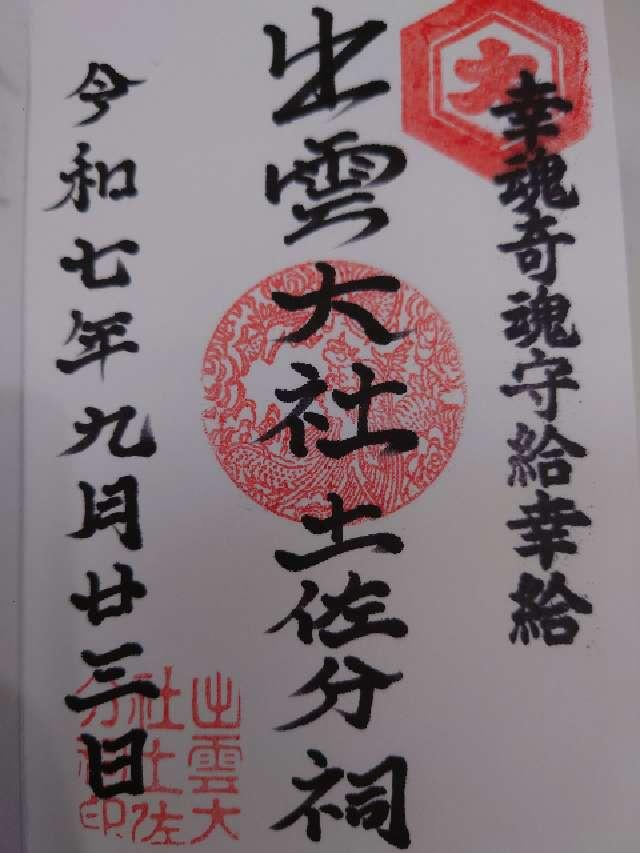 大
幸魂奇魂守給幸給
出雲大社土佐分祠
令和七年九月廿三日
出雲大
社土佐
分祠印